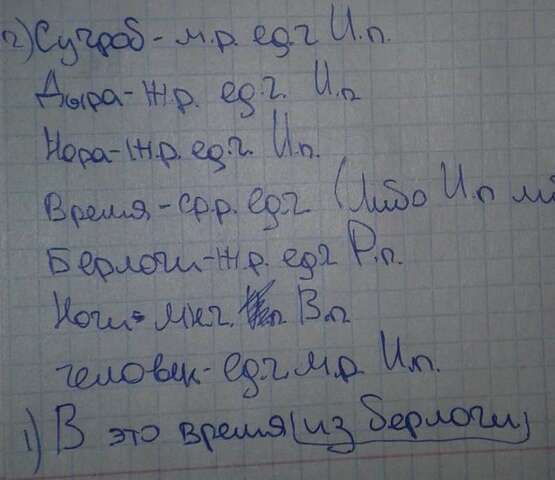 2) Сугроб - м.р. ед.ч И.п.
Дыра - ж.р. ед.ч. И.п
Нора - ж.р. ед.ч. И.п.
Время - ср.р. ед.ч (Либо И.п
Берлоги - ж.р. ед.ч Р.п.
Ноги - мн.ч. В.п
человек - ед.ч м.р. И.п.
1) В это время (из берлоги)